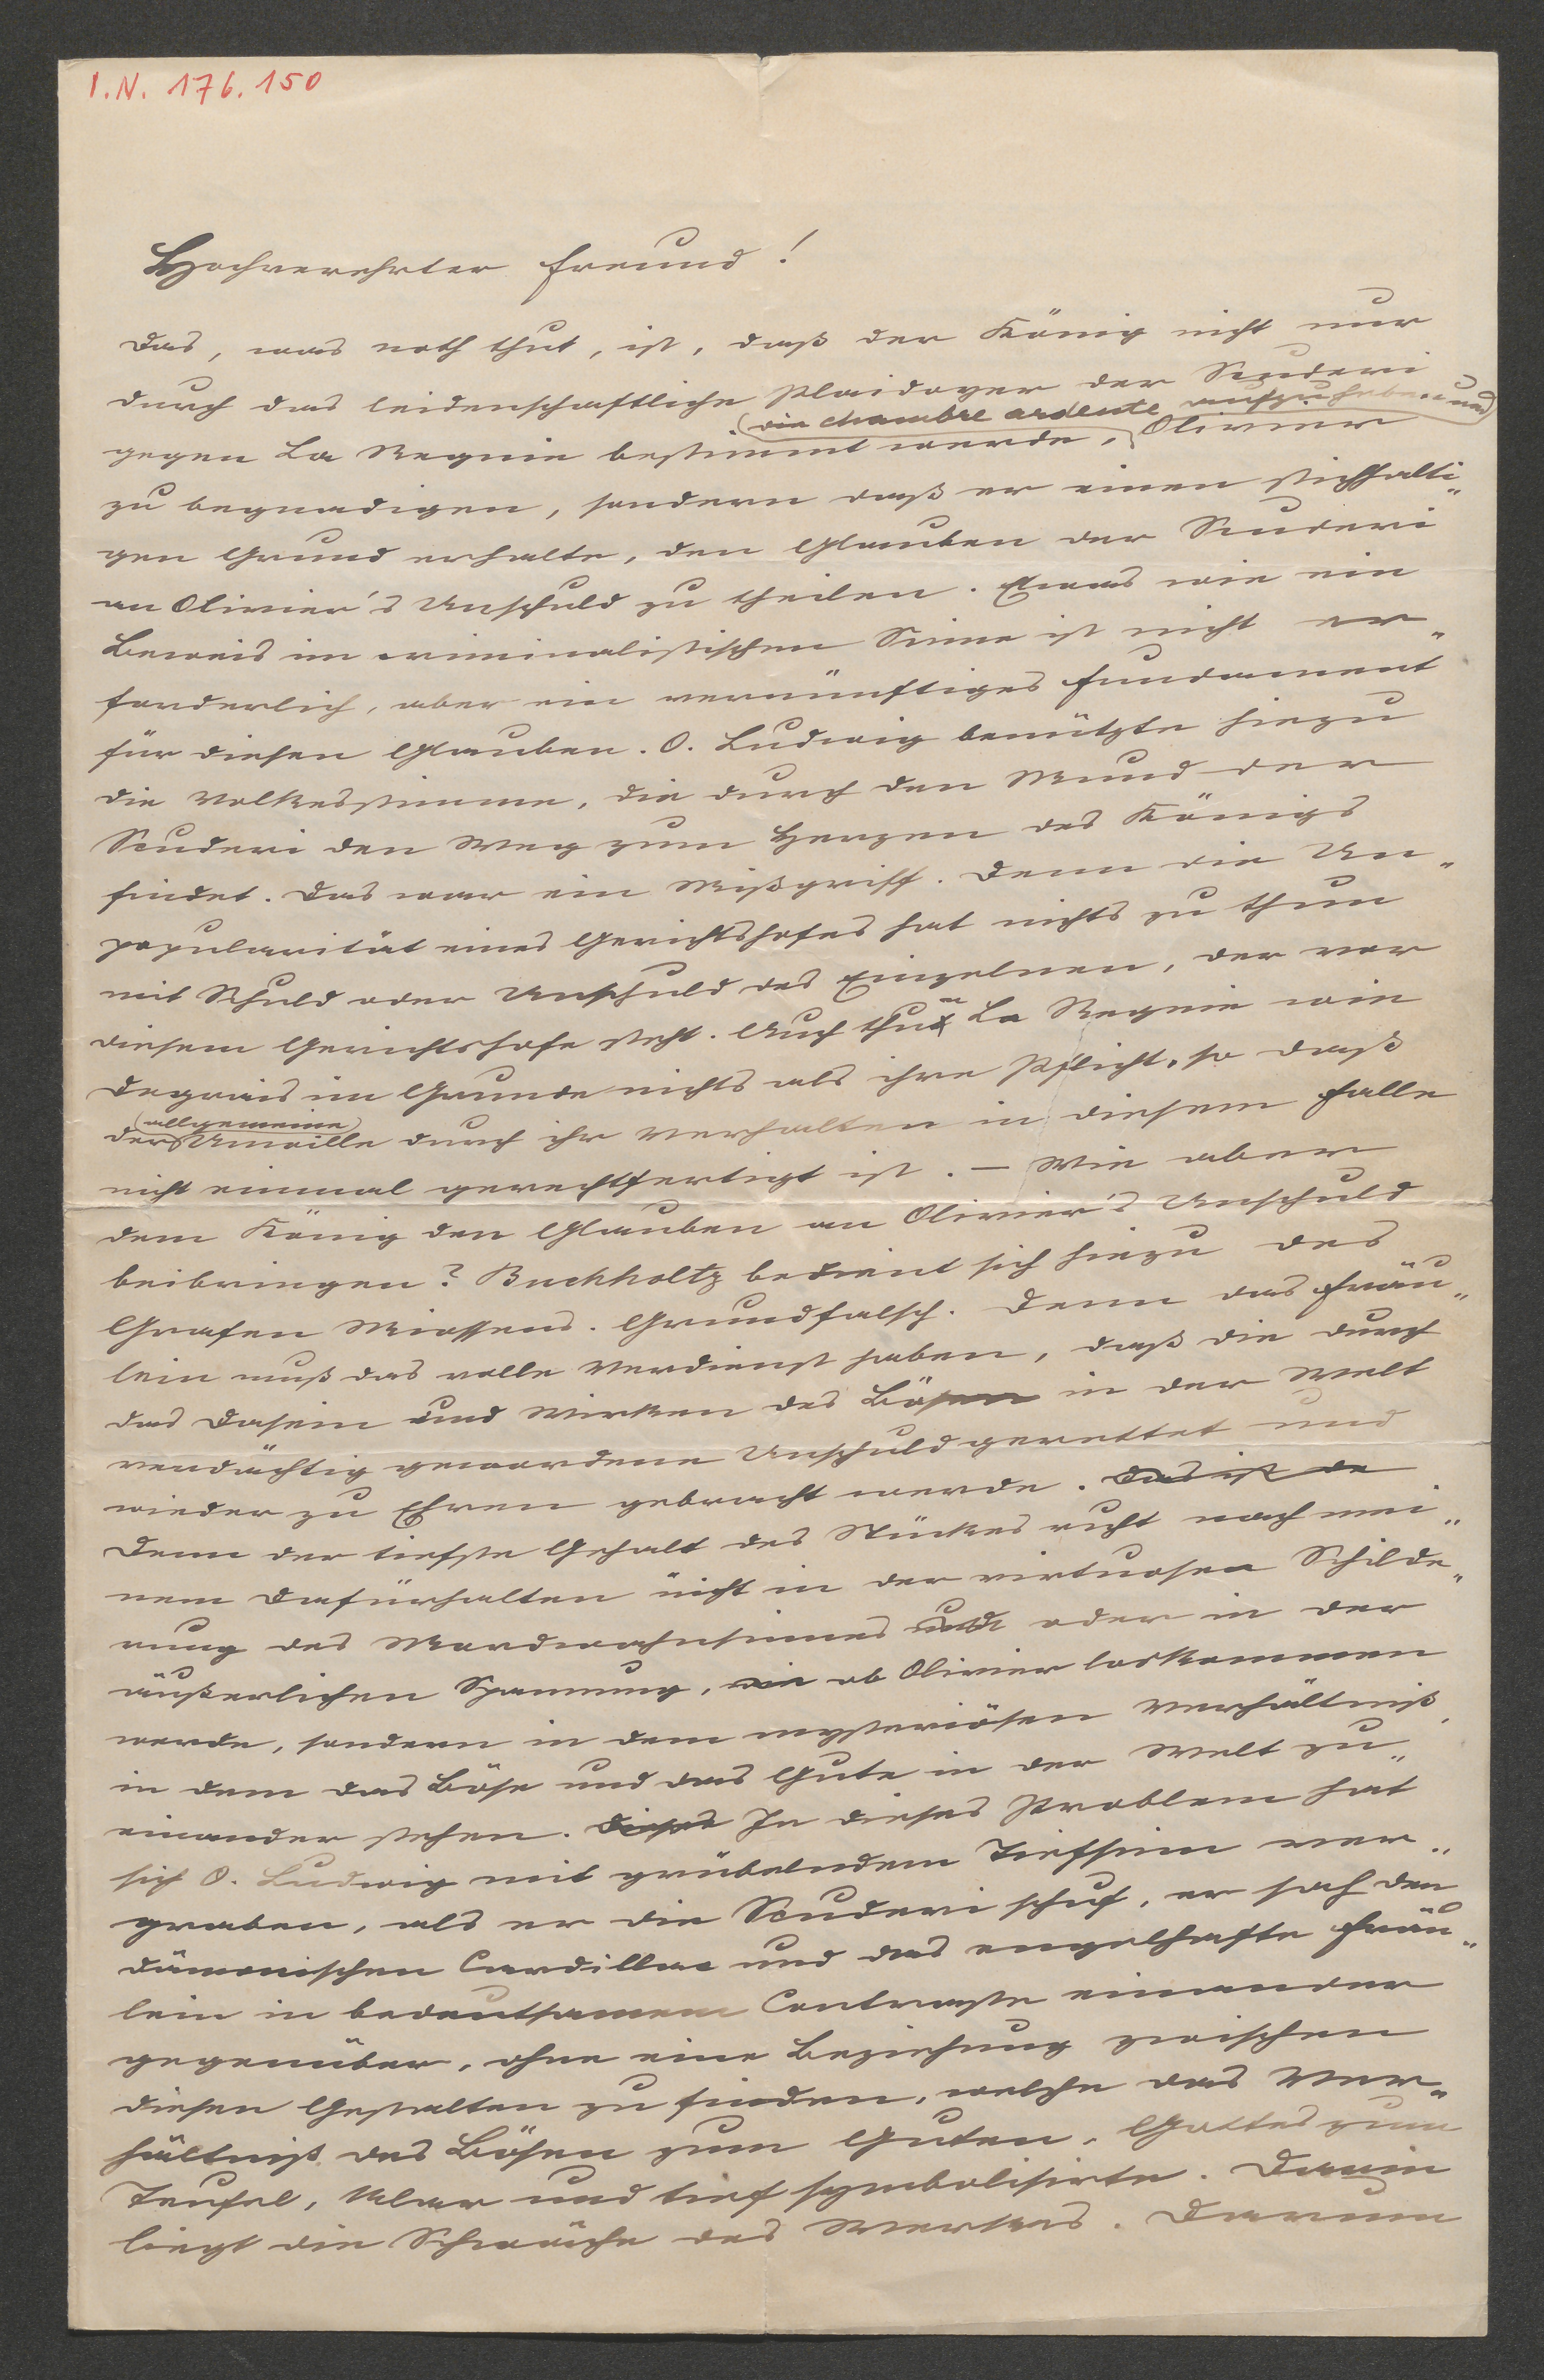 I.N. 176.150
Hochverehrter Freund!
Das, was noth thut, ist, daß der König nicht nur
durch das leidenschaftliche Plaidoyer der Scuderi
die chambre ardente aufzuheben und
gegen La Regnie bestimmt werde, Olivier
zu begnadigen, sondern daß er einen stichhalti„
gen Grund erhalte, den Glauben der Scuderi
an Olivier's Unschuld zu theilen. Etwas wie ein
Beweis im criminalistischen Sinne ist nicht er„
forderlich, aber ein vernünftiges Fundament
für diesen Glauben. O. Ludwig benützte hiezu
die Volkesstimme, die durch den Mund der
Scuderi den Weg zum Herzen des Königs
findet. Das war ein Mißgriff. Denn die Un„
popularität eines Gerichtshofes hat nichts zu thun
mit Schuld oder Unschuld des Einzelnen, der vor
diesem Gerichtshofe steht. Auch thun La Regnie wie
Degrais im Grunde nichts als ihre Pflicht, so daß
allgemeine
der Unwille durch ihr Verhalten in diesem Falle
nicht einmal gerechtfertigt ist. – Wie aber
dem König den Glauben an Olivier's Unschuld
beibringen? Buchholtz bedient sich hiezu des
Grafen Miossens. Grundfalsch. Denn das Fräu„
lein muß das volle Verdienst haben, daß die durch
das Dasein und Wirken des Bösen in der Welt
verdächtig gewordene Unschuld gerettet und
wieder zu Ehren gebracht werde. Das ist de
Denn der tiefste Gehalt des Stückes ruht nach mei„
nem Dafürhalten nicht in der virtuosen Schilde„
rung des Mordwahnsinnes und oder in der
äußerlichen Spannung, wie ob Olivier loskommen
werde, sondern in dem mysteriösen Verhältniß,
in dem das Böse und das Gute in der Welt zu„
einander stehen. Dieses In dieses Problem hat
sich O. Ludwig mit grübelndem Tiefsinn ver„
graben, als er die Scuderi schuf, er sah den
dämonischen Cardillac und das engelhafte Fräu„
lein in bedeutsamem Contraste einander
gegenüber, ohne eine Beziehung zwischen
diesen Gestalten zu finden, welche das Ver„
hältniß des Bösen zum Guten, Gottes zum
Teufel, klar und tief symbolisirte. Darin
liegt die Schwäche des Werkes. Darum